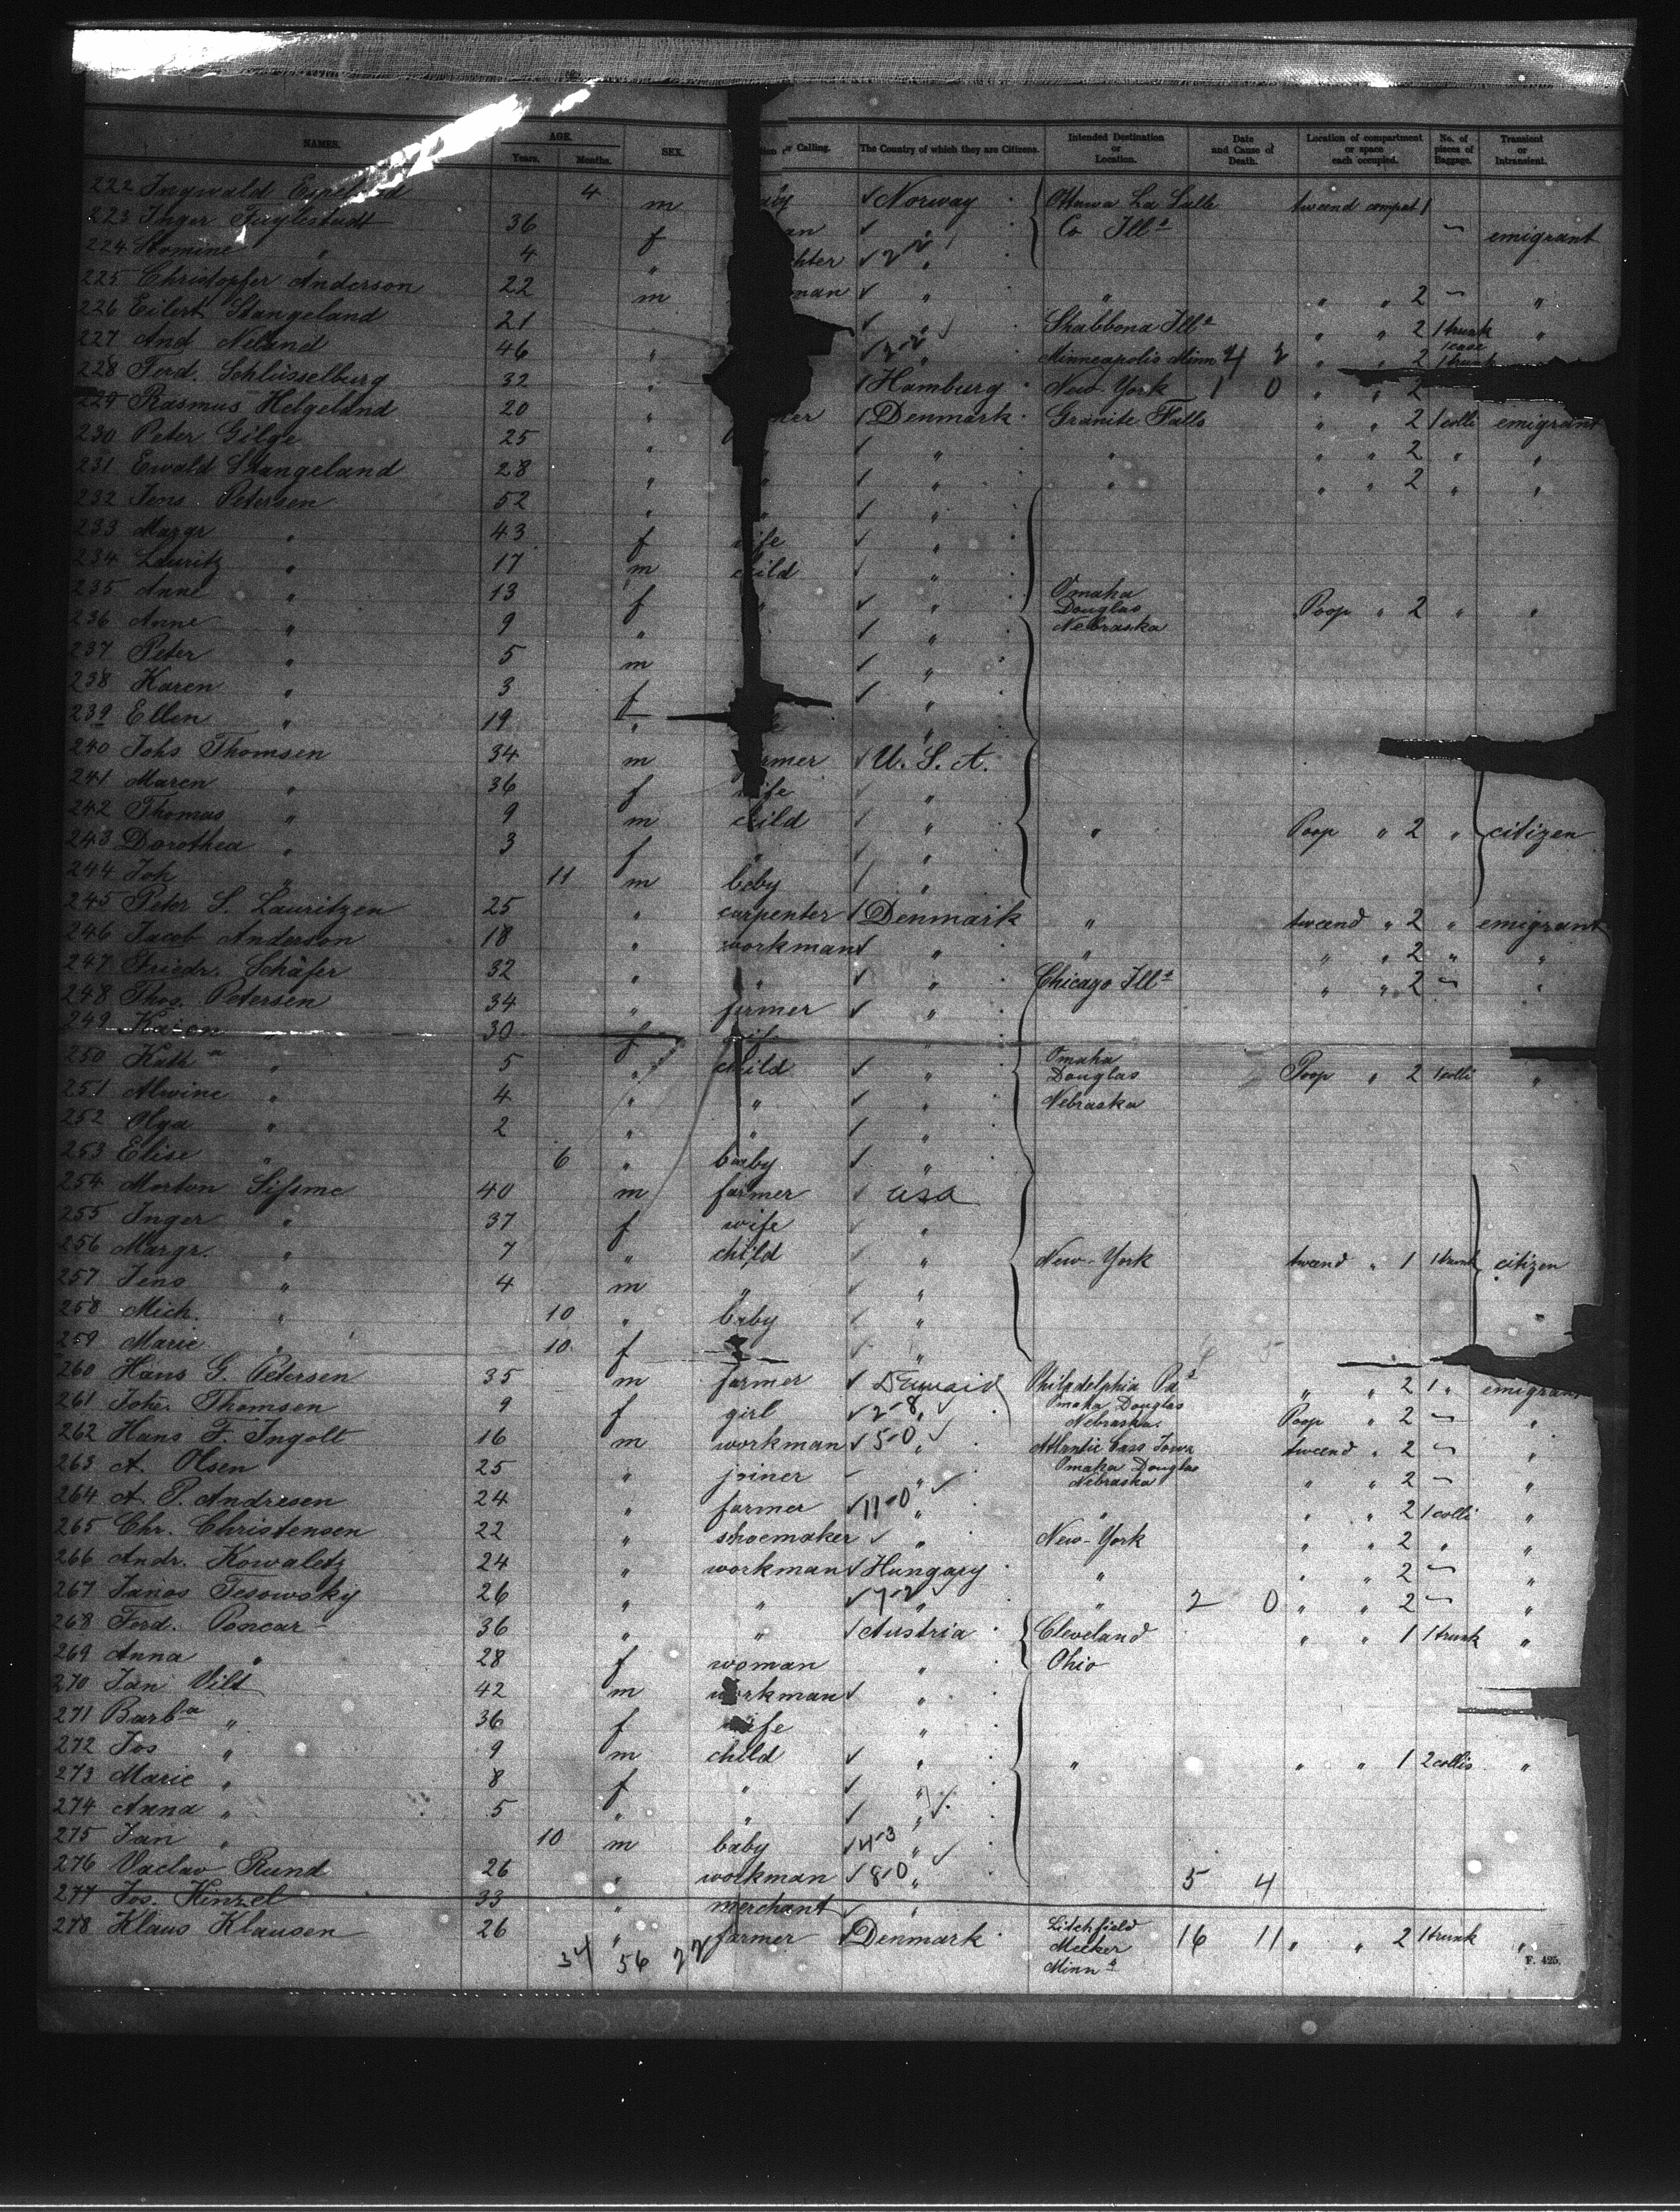 NAMES. AGE. Years. Months. SEX. r Calling. The Country of which they are Citizens. Intended Destination or Location. Date and Cause of Death. Location of compartment or space each occupied. No. of pieces of Baggage. Transient or Intransient.
222 Ingwald 4 m Norway Ottawa La Salle tweend compat 1
223 Inger 36 f Co Ills emigrant
224 " 4 "
225 Christopfer Anderson 22 m " " " " 2 "
226 Eilert Stangeland 21 " Shabbona Ills " " 2 1 trunk "
1 case
227 And Neland 46 " 2-2 " Minneapolis Minn 4 2 " " 2 1 trunk
228 Ferd. Schlüsselburg 32 " Hamburg New-York 1 0 " " 2
229 Rasmus Helgeland 20 " Denmark Granite Falls " " 2 1 colli emigrant
230 Peter Gilge 25 " " " " " " 2 " "
231 Ewald Stangeland 28 " " " " " " 2 " "
232 Jens Petersen 52 " " "
233 Margr " 43 f wife "
234 Lauritz " 17 m child "
235 Anne " 13 f " " Omaha Douglas Nebraska Poop " 2 " "
236 Anne " 9 " "
237 Peter " 5 m "
238 Karen " 3 f "
239 Ellen " 19 " "
240 Johs Thomsen 34 m farmer U.S.A.
241 Maren " 36 f wife "
242 Thomas " 9 m child " " Poop " 2 " citizen
243 Dorothea " 3 f " "
244 Joh " 11 m baby "
245 Peter S. Lauritzen 25 " carpenter Denmark " tweend " 2 " emigrant
246 Jacob Anderson 18 " workman " " " " 2 " "
247 Friedr. Schäfer 32 " " " Chicago Ills " " 2 "
248 Thos. Petersen 34 " farmer "
249 Karen " 30 f wife "
250 Kath a " 5 " child " Omaha Douglas Nebraska Poop " 2 1 colli "
251 Alwine " 4 " " "
252 Olga " 2 " " "
253 Elise " 6 " baby "
254 Morten 40 m farmer usa
255 Inger " 37 f wife "
256 Margr. " 7 " child " New-York tweend " 1 1 trunk citizen
257 Jens " 4 m " "
258 Mich. " 10 " baby "
259 Marie " 10 f "
260 Hans G. Petersen 35 m farmer Philadelphia Pa " " 2 1 " emigrant
261 Thomsen 9 f girl 2-8 " Omaha Douglas Nebraska Poop " 2 "
262 Hans F. Ingolt 16 m workman 5-0 " Atlantic Cass Iowa tweend " 2 "
263 A. Olsen 25 " joiner " Omaha Douglas Nebraska " " 2 "
264 A P. Andresen 24 " farmer 11-0 " " " " 2 1 colli "
265 Chr. Christensen 22 " shoemaker " New-York " " 2 " "
266 Andr. Kowaletz 24 " workman Hungary " " " 2 "
267 Janos Tesowsky 26 " " 7-2 " " 2 0 " " 2 "
268 Ferd. Poncar 36 " " Austria Cleveland " " 1 1 trunk "
269 Anna " 28 f woman " Ohio
270 Jan Vilt 42 m workman "
271 Barb a " 36 f wife "
272 Jos " 9 m child " " " " 1 2 collis "
273 Marie " 8 f " "
274 Anna " 5 " " "
275 Jan " 10 m baby 4-3 "
276 Vaclav Rund 26 " workman 8-0 " 5 4
277 Jos. Kinzel 33 " merchant "
278 Klaus Klausen 26 " farmer Denmark Litchfield Meeker Minn a 16 11 " " 2 1 trunk "
34 56 22
F. 425.